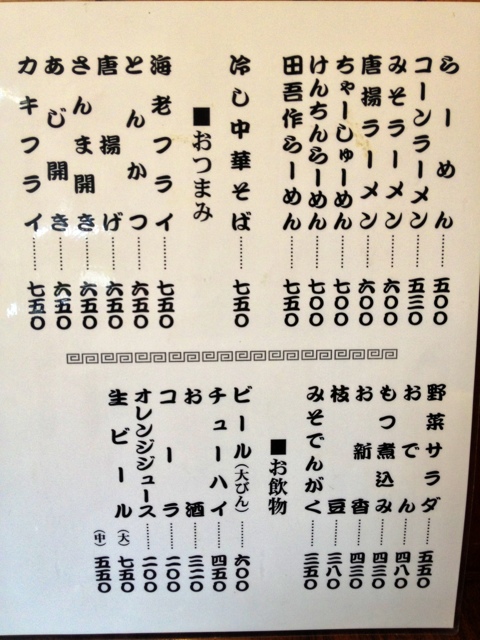 らーめん……五〇〇
コーンラーメン……五三〇
みそラーメン……六〇〇
唐揚ラーメン……六〇〇
ちゃーしゅーめん……七〇〇
けんちんらーめん……七〇〇
田吾作らーめん……七五〇
冷し中華そば……七五〇
■おつまみ
海老フライ……七五〇
とんかつ……六五〇
唐揚げ……六五〇
さんま開き……六五〇
あじ開き……六五〇
カキフライ……七五〇
野菜サラダ……五五〇
おでん……四八〇
もつ煮込み……四三〇
お新香……四三〇
枝豆……三八〇
みそでんがく……三五〇
■お飲物
ビール(大びん)……六〇〇
チューハイ……四五〇
お酒……三二〇
コーラ……二〇〇
オレンジジュース……二〇〇
生ビール(大)七五〇
(中)五五〇